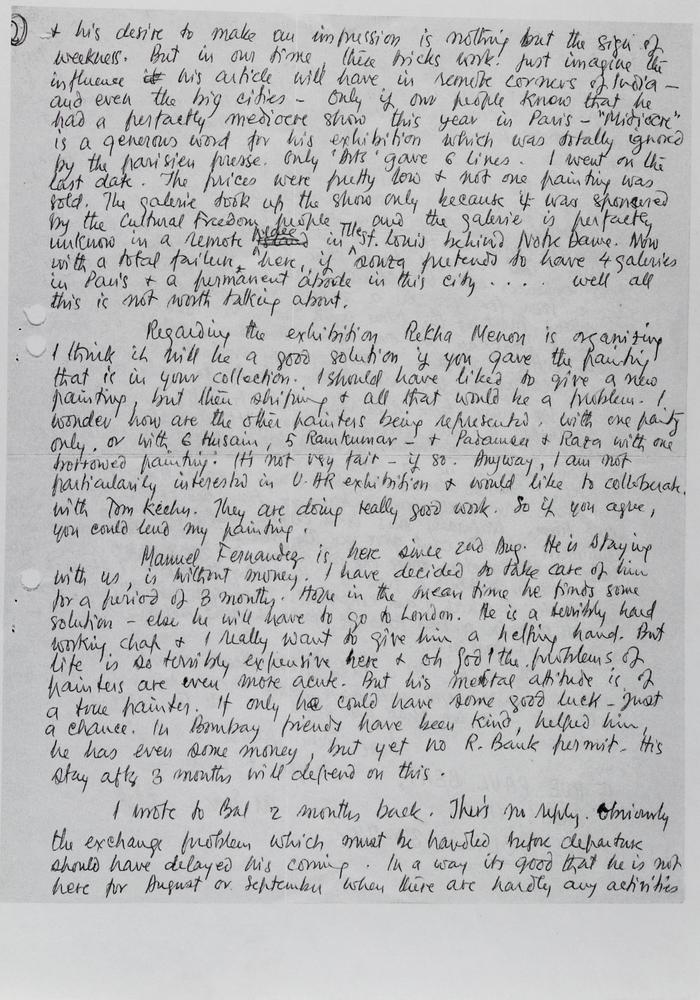 2)
& his desire to make an impression is nothing but the sign of
weakness. But in our time, these tricks work! Just imagine the
influence it his article will have in remote corners of India –
and even the big cities – Only if our people knew that he
had a perfectly mediocre show this year in Paris – "Midiocre"
is a generous word for his exhibition which was totally ignored
by the parisien presse. Only 'Arts' gave 6 lines. I went on the
last date. The prices were pretty low & not one painting was
sold. The galerie took up the show only because it was sponsered
by the Cultural Freedom people and the galerie is perfectly
unknow in a remote in Ille St. Louis behind Notre Dame. Now
with a total failure, here, if Souza pretends to have 4 galeries
in Paris & a permanent abode in this city . . . . well all
this is not worth talking about.
Regarding the exhibition Rekha Menon is organising
I think it will be a good solution if you gave the painting
that is in your collection. I should have liked to give a new
painting, but then shiping & all that would be a problem. I
wonder how are the other painters being represented. with one
only. or with 6 Husain, 5 Ramkumar – & Padamsee & Raza with one
borrowed painting! It's not very fair – if so. Anyway, I am not
particularily interested in U.AR exhibition & would like to collaborate.
with Tom Keehn. They are doing really good work. So if you agree,
you could lend my painting.
Manuel Fernandez is here since 2nd Aug. He is staying
with us, is without money. I have decided to take care of him
for a period of 3 months. Hope in the mean time he finds some
solution – else he will have to go to London. He is a terribly hard
working chap & I really want to give him a helping hand. But
life is so terribly expensive here & oh God! the problems of
painters are even more acute. But his mental attitude is of
a true painter. If only he could have some good luck – just
a chance. In Bombay friends have been kind, helped him,
he has even some money, but yet no R. Bank permit. His
stay after 3 months will depend on this.
I wrote to Bal 2 months back. There's no reply. Obviously
the exchange problem which must be handled before departure
should have delayed his coming. In a way its good that he is not
here for August or September when there are hardly any activities